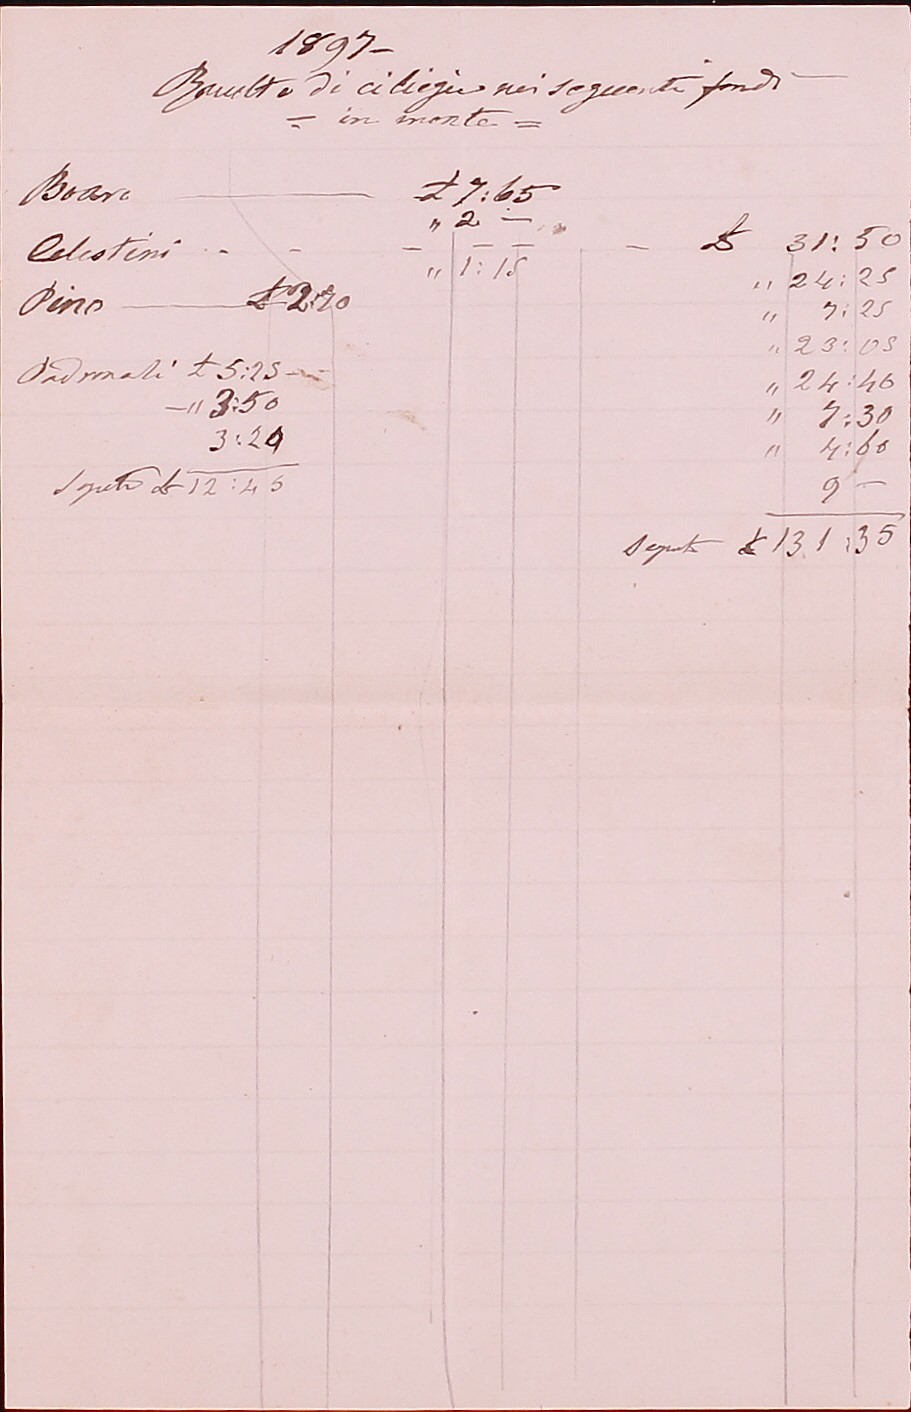 1897-
di ciliegie nei seguenti fondi
= in monte =
Boaro £ 7:65
" 2 —
Celestini - - - - - - £ 31:50
" 1:15
" 24:25
Pino £ 2:20
" 7:25
" 23:05
Padronali £ 5:25
" 24:40
" 3:50
" 7:30
3:20
" 4:60
£ 12:45
9 —
£ 131:35